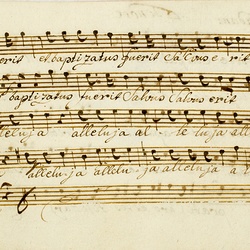 erit et baptizatus fuerit Salvus e rit
baptizatus fuerit Salvus Salvus erit
alleluja alleluja al le luja alle
allelu ja allelu ja alleluja a
6